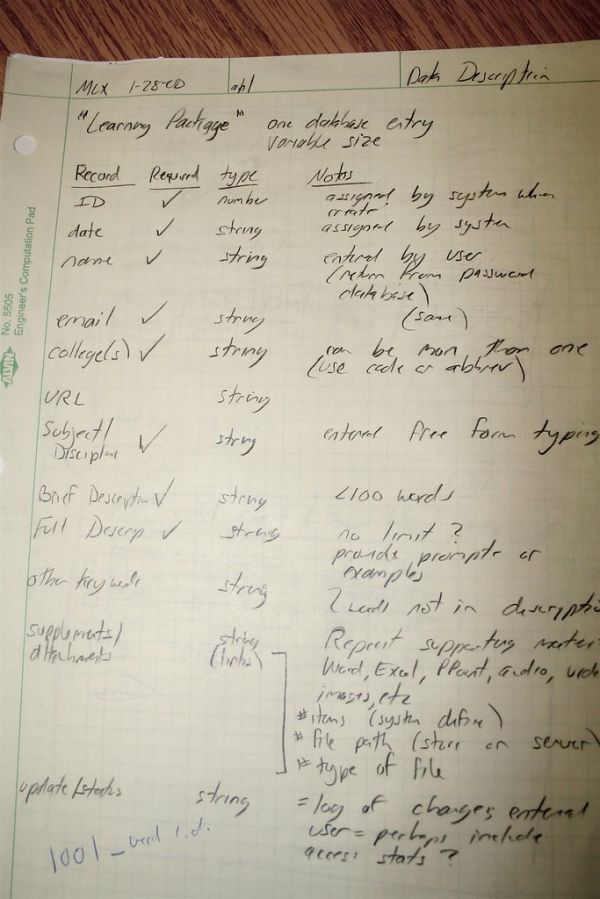 MLX 1-28-00 abl Data Description
"Learning Package" one database entry
variable size
Record Required type Notes
ID ✓ number assigned by system when
create
date ✓ string assigned by system
name ✓ string entered by user
(return from password
database)
email ✓ string (same)
college(s) ✓ string can be more than one
(use code or abbrev)
URL string
Subject/
Discipline ✓ string entered free form typing
Brief Description ✓ string <100 words
Full Descrip ✓ string no limit?
provide prompts or
examples
other keywords string
words not in descriptio
supplements/ string Represt supporting mater
attachments (links) Word, Excel, PPoint, audio, vide
images, etc
# items (system define)
* file path (store on server)
* type of file
update/status string = log of changes entered
user = perhaps include
access stats?
1001_word i.d.
ALVIN No. 5505
Engineer's Computation Pad